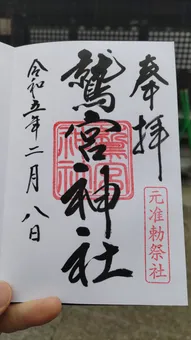 奉拝
鷲宮神社
鷲宮神社
元准勅祭社
令和五年二月八日